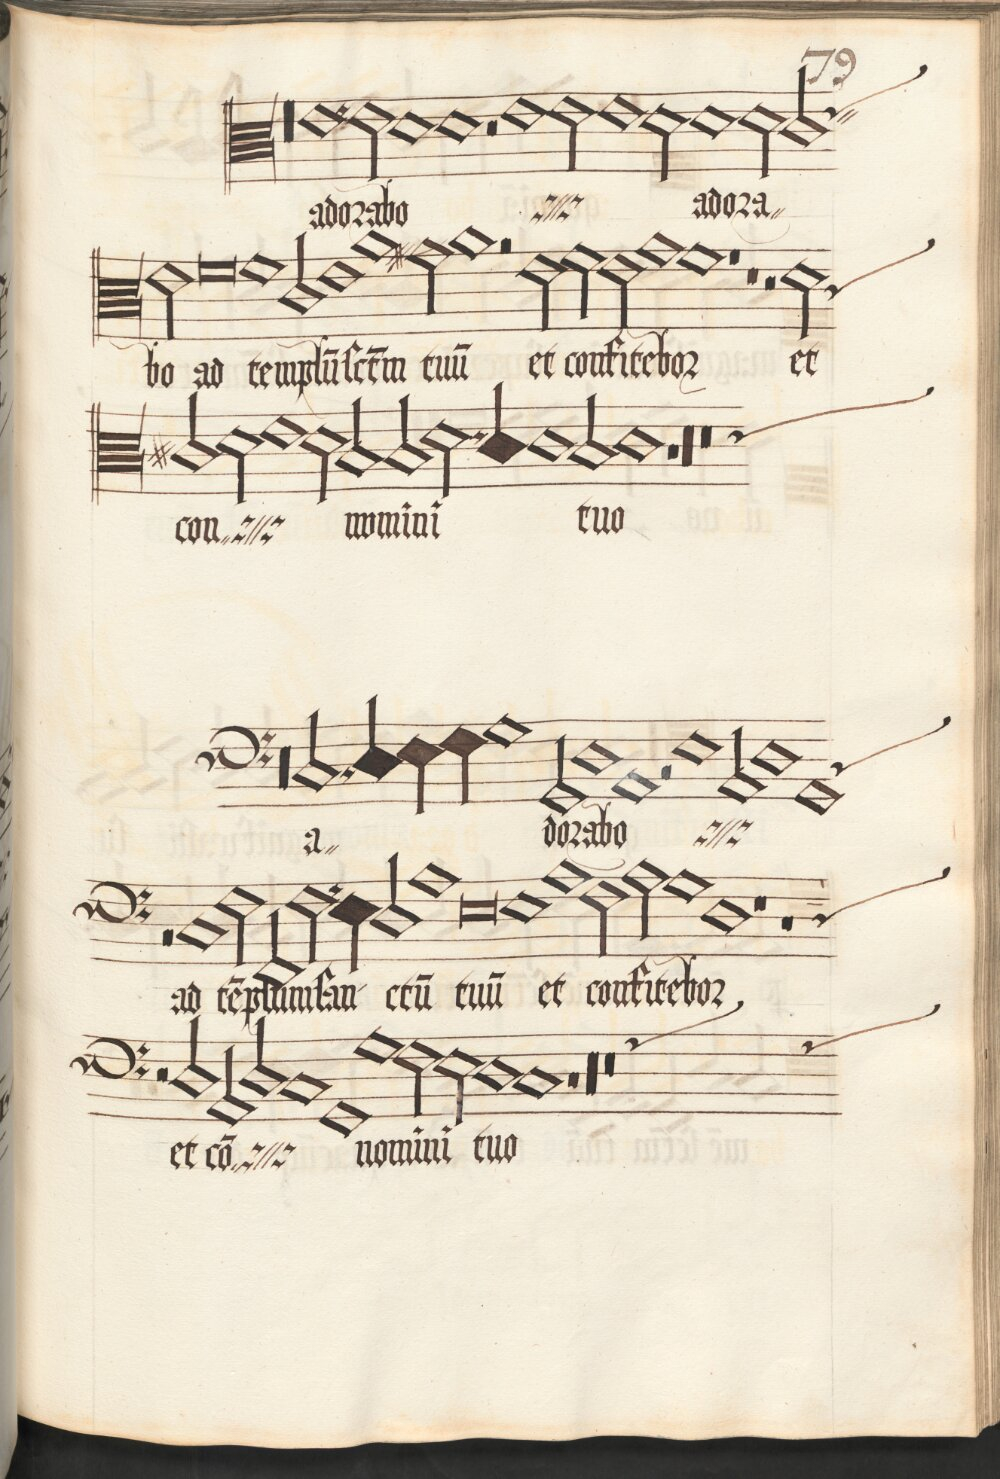 79
adorabo adora
bo ad templū sctm̄ tuū et confitebor et
con nomini tuo
a dorabo
ad tēplum san ctū tuū et confitebor
et cō nomini tuo